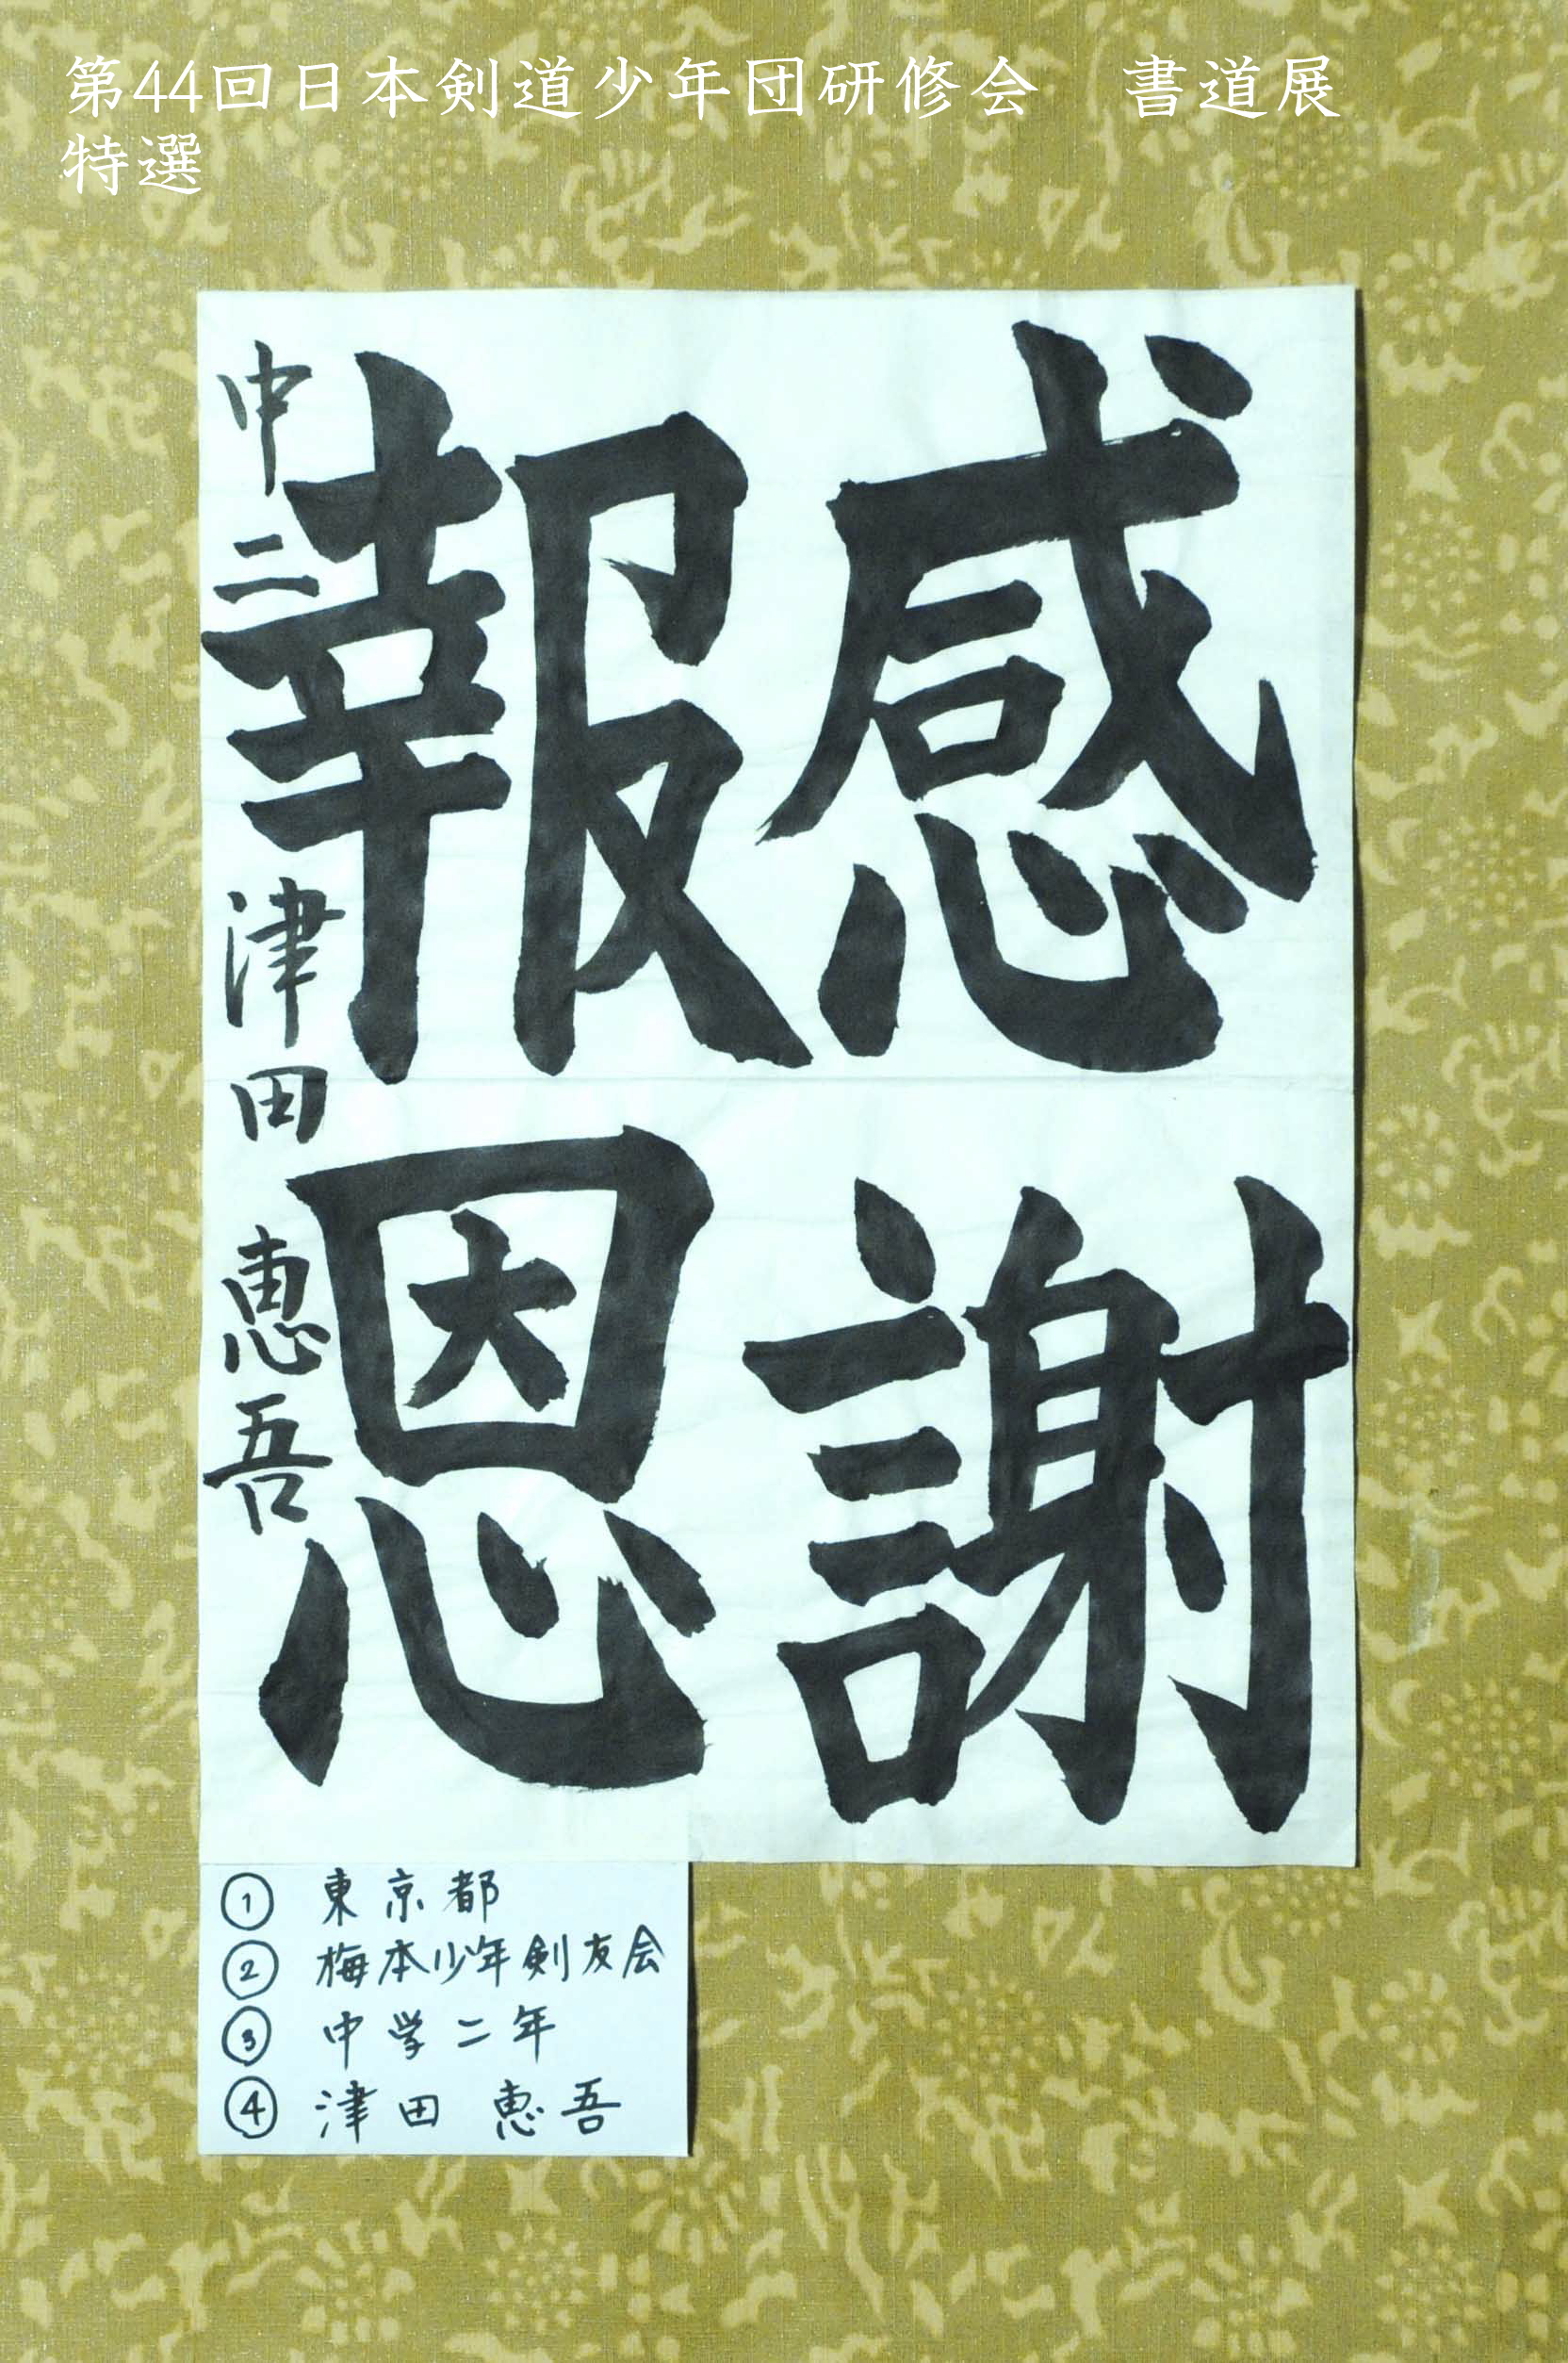 第44回日本剣道少年団研修会　書道展
特選
感謝
報恩
中二 津田 恵吾
① 東京都
② 梅本少年剣友会
③ 中学二年
④ 津田 恵吾